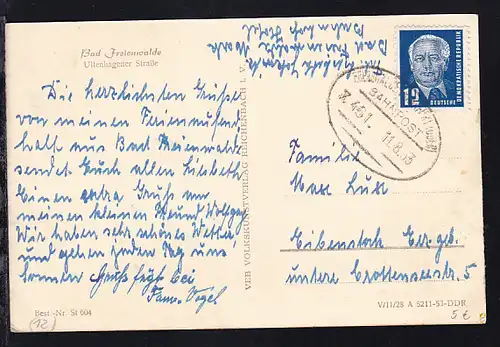 Bad Freienwalde
Uchtenhagener Straße
Die herzlichsten Grüße
von meinem Ferienaufent-
halt aus Bad Freienwalde
sendet Euch allen Elisabeth
Einen extra Gruß an
meinen kleinen Freund Wolfgang
Wir haben sehr schönes Wetter
und gehen jeden Tag uns
sonnen
Fam. Vogel
Best.-Nr. St 604
(12)
VEB VOLKSKUNSTVERLAG REICHENBACH i. V.
Bad Freienwalde
Bahnhof
12
DEUTSCHE
DEMOKRATISCHE REPUBLIK
BAHNPOST
Z. 451
11.8.53
Familie
Max Lux
Eibenstock Erzgeb.
untere Crottenseestr. 5
V/11/28 A 5211-53-DDR
5 €